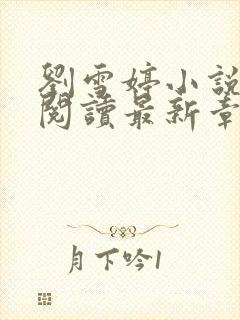 劉雪婷小說
閱讀最新章
月下吟1